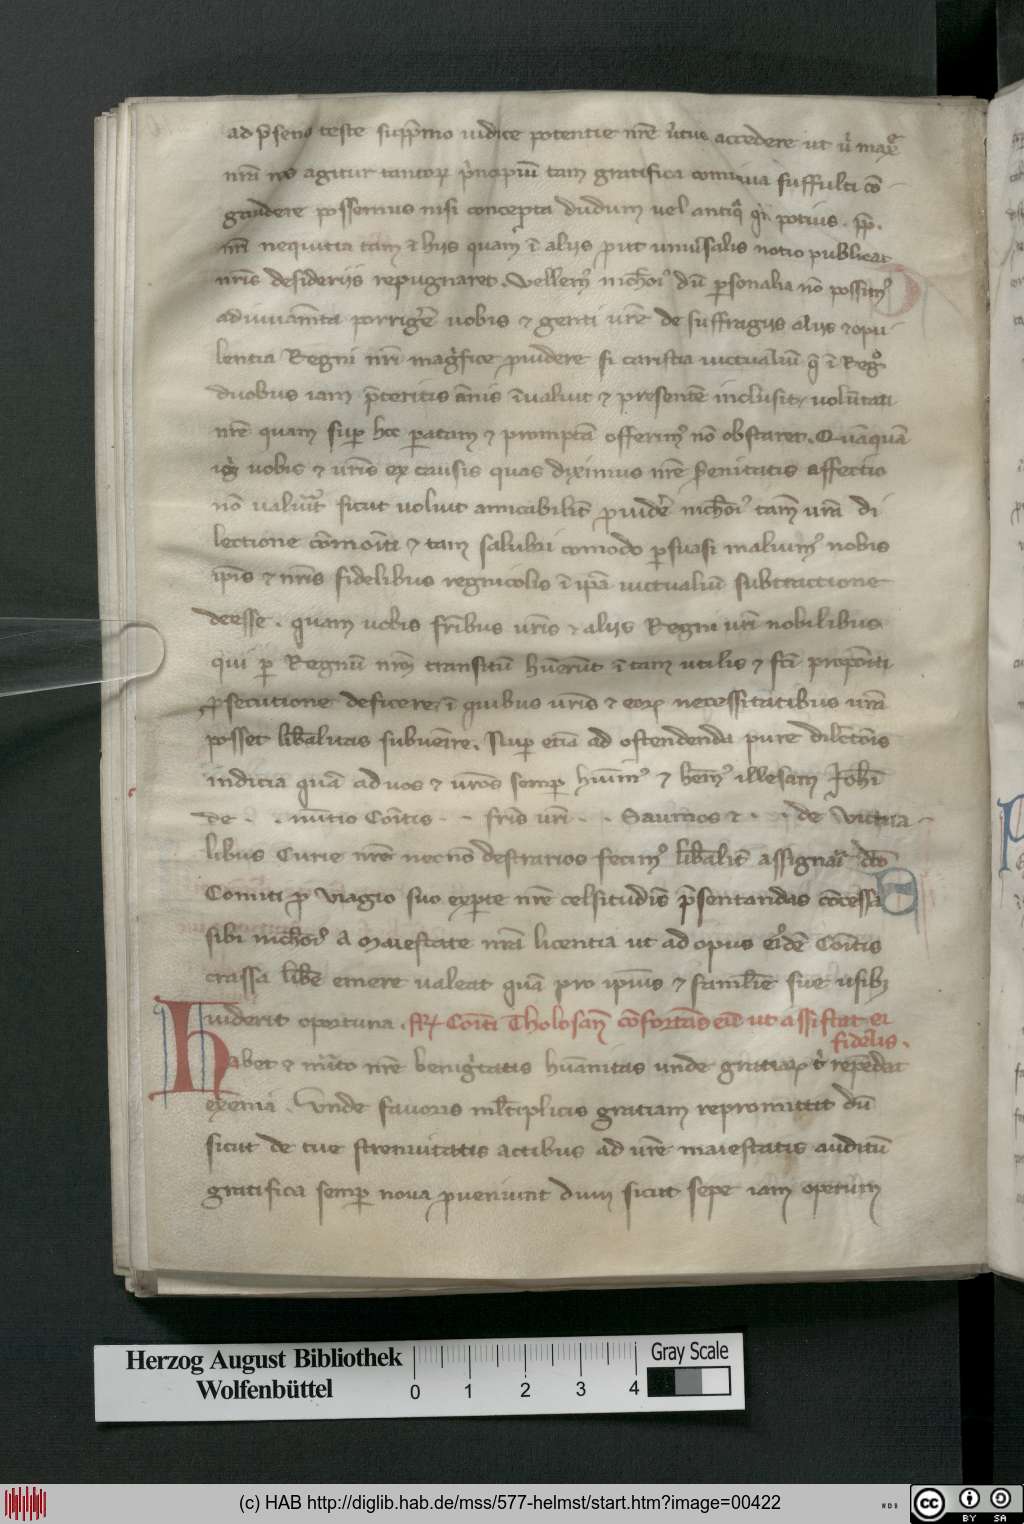 ad p̄senc̄ teste supp̄mo iudice potentie nr̄e accedere ut
nr̄a agitur tam gratifica suffulti cō
gaudere possemus nisi concepta dudum uel potius
nr̄i nequitia tam ī hijs quam ī alijs put uniu̾salis notio publicat
nr̄is desiderijs repugnaret. Vellem⁹ nich̄oī dū p̱sonalia nō possim⁹
adiuuam̄ta porrig̾e uobis ⁊ genti ur̄e de suffragijs alijs ⁊ opu
lentia Regni nr̄i mag̾fice ꝓuidere si caristia uictualiū q̄ ī Reg̊
duobus iam p̄teritis ānis īualuit ⁊ presentē inclusit uolūtati
nr̄e quam sup̱ hoc p̱atam ⁊ promptā offerim⁹ nō obstaret. Quāquā
ig̾ uobis ⁊ ur̄is ex causis quas diximus nr̄e s̾enitatis affectio
nō ualuīt sicut uoluit amicabilit̄ ꝓuidēr nich̄oī tam̄ ur̄a di
lectione cōmoniti ⁊ tam salubri comodo p̱suasi maluim⁹ nobis
ip̄is ⁊ nr̄is fidelibus regnicolis ī ip̄a uictualiū subtractione
deesse. quam uobis fr̄ibus ur̄is ⁊ alijs Regni ur̄i nobilibus
qui p̱ Regnū nr̄m transitū hūerūt ī tam utilis ⁊ sc̄i propo̅iti
ꝓsecutione deficere, ī quibus ur̄is ⁊ eoꝝ necessitatibus ur̄a
posset lib̄alitas subuenire. Nup̱ etiā ad ostendenda pure dilect̄ois
indicia quā ad uos ⁊ ur̄os semp̱ huim⁹ ⁊ hēm⁹ illesam Joh̄i
de . . nūtio Comitis . . fr̄is ur̄i . . Saumos ⁊ . . de victua
libus Curie nr̄e necnō destrarios fecim⁹ lib̄alit̄ assignāri dc̄o
Comiti ꝓ viagio suo exp̱te nr̄e celsitudīs p̄sentandas cōcessa
sibi nich̄oī a Maiestate nr̄a licentia ut ad opus eīdē Comitis
crassa lib̄e emere ualeat quā pro ip̄ius ⁊ familīe sue usibꝫ
uiderit oportuna. Fr̄. Comiti Tholosan̄ cōfortās eū ut assistat ei
fidelis.
Habet ⁊ m̾ito nr̄e benig̾tatis hūanitas unde gratiaꝝ t̾ repēdat
exēnia. Vnde fauoris mlt̄iplicis gratiam repromittit dū
sicut de tue strenuitatis actibus ad ur̄e maiestatis auditū
gratifica semp̱ noua ꝓueniunt dum sicut sepe iam operum
Herzog August Bibliothek
Wolfenbüttel
0 1 2 3 4
Gray Scale
(c) HAB http://diglib.hab.de/mss/577-helmst/start.htm?image=00422
WDB
cc BY SA